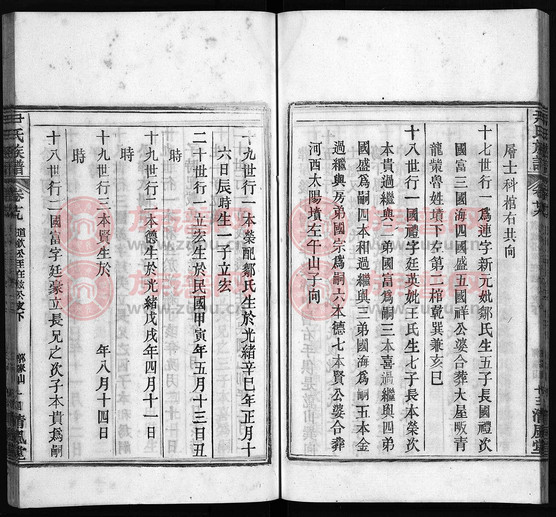 層士科棺右共向
十七世行一爲連字新元妣鄒氏生五子長國禮次
國富三國海四國盛五國祥公婆合葬大屋畈青
龍榮魯姓墳下左第二棺乾巽兼亥巳
十八世行一國禮字廷英妣王氏生七子長本榮次
本貴過繼與二弟國富爲嗣三本喜過繼與四弟
國盛爲嗣四本和過繼與三弟國海爲嗣五本金
過繼與房弟國宗爲嗣六本德七本賢公婆合葬
河西太陽墳左午山子向
尹氏族譜
清風堂
十九世行一本榮配鄒氏生於光緒辛巳年正月十
六日辰時生一子立宏
二十世行一立宏生於民國甲寅年五月十三日丑
時
十九世行二本德生於光緒戊戌年四月十一日
時
十九世行三本賢生於 年八月十四
時
十八世行二國富字廷豪立長兄之次子本貴爲嗣
尹氏族譜
清風堂